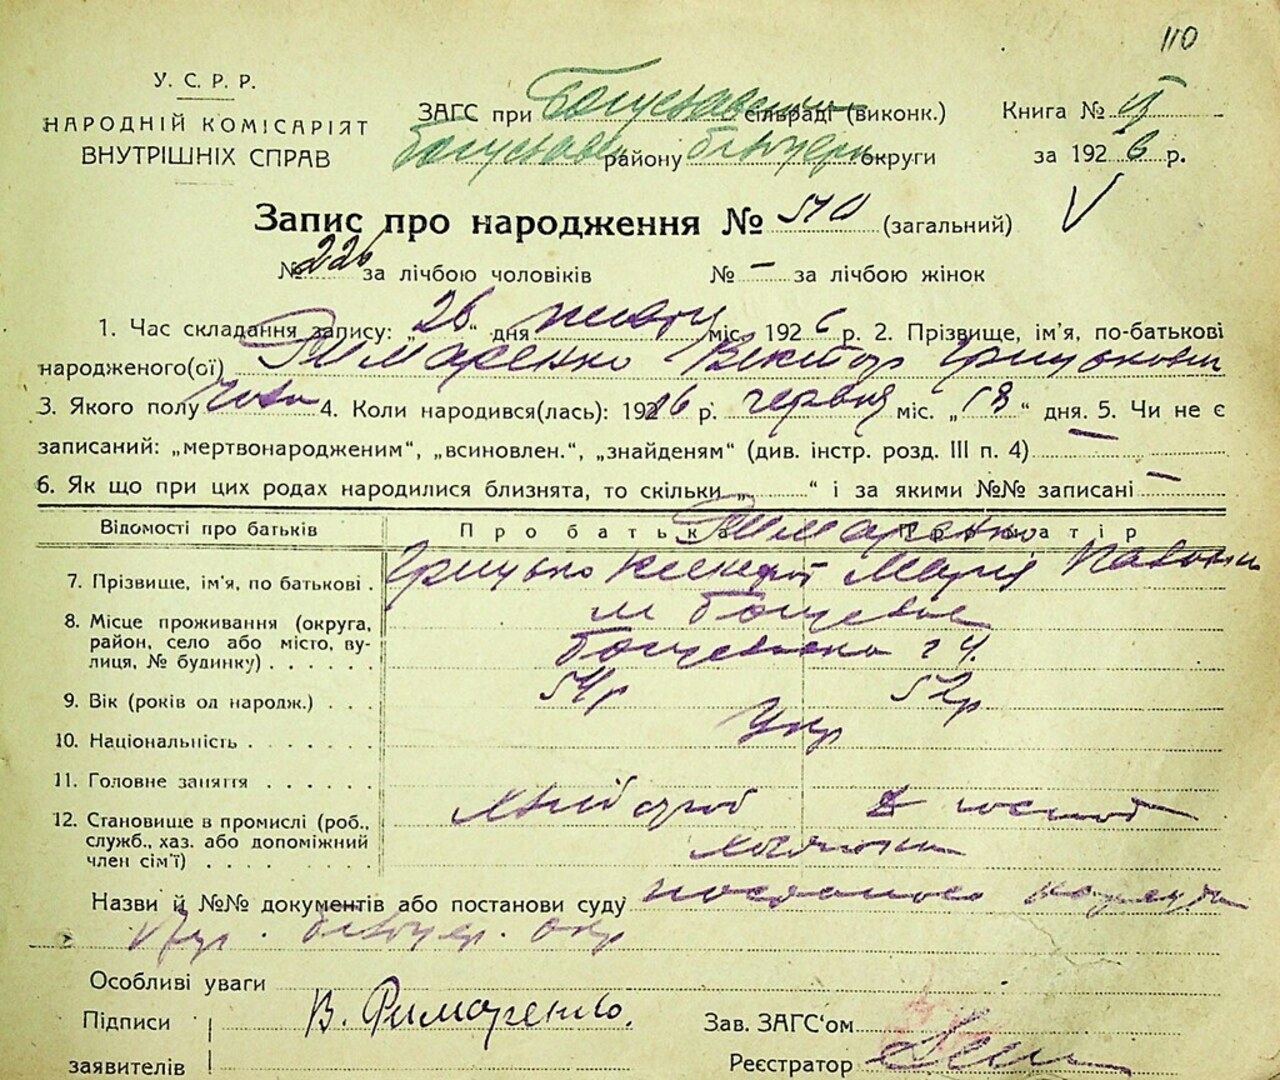 110
У. С. Р. Р.
НАРОДНІЙ КОМІСАРІЯТ
ВНУТРІШНІХ СПРАВ
ЗАГС при Богуславськ сільраді (виконк.)
Богуславськ району білоцерк округи
Книга № II
за 1926 р.
Запис про народження № 540 (загальний)
№ 226 за лічбою чоловіків № — за лічбою жінок
1. Час складання запису: „26“ дня жовтн міс. 1926 р. 2. Прізвище, ім'я, по-батькові
народженого(ої) Римаренко Віктор Грицькович
3. Якого полу чолов 4. Коли народився(лась): 1916 р. червня міс. „18“ дня. 5. Чи не є
записаний: „мертвонародженим“, „всиновлен.“, „знайденям“ (див. інстр. розд. III п. 4) —
6. Як що при цих родах народилися близнята, то скільки „ “ і за якими №№ записані —
Відомості про батьків Про батька Про матір
Римаренко
7. Прізвище, ім'я, по батькові . Грицько Марія Павлівн
8. Місце проживання (округа, район, село або місто, вулиця, № будинку) . . . . . . м Богуслав
9. Вік (років од народж.) . . . 54р 52р
10. Національність . . . . . . . Укр
11. Головне заняття . . . . . .
12. Становище в промислі (роб., служб., хаз. або допоміжний член сім'ї) . . . . . . .
Назви й №№ документів або постанови суду постанова
білоцер. окр
Особливі уваги
Підписи
заявителів
В. Римаренко.
Зав. ЗАГС'ом
Реєстратор